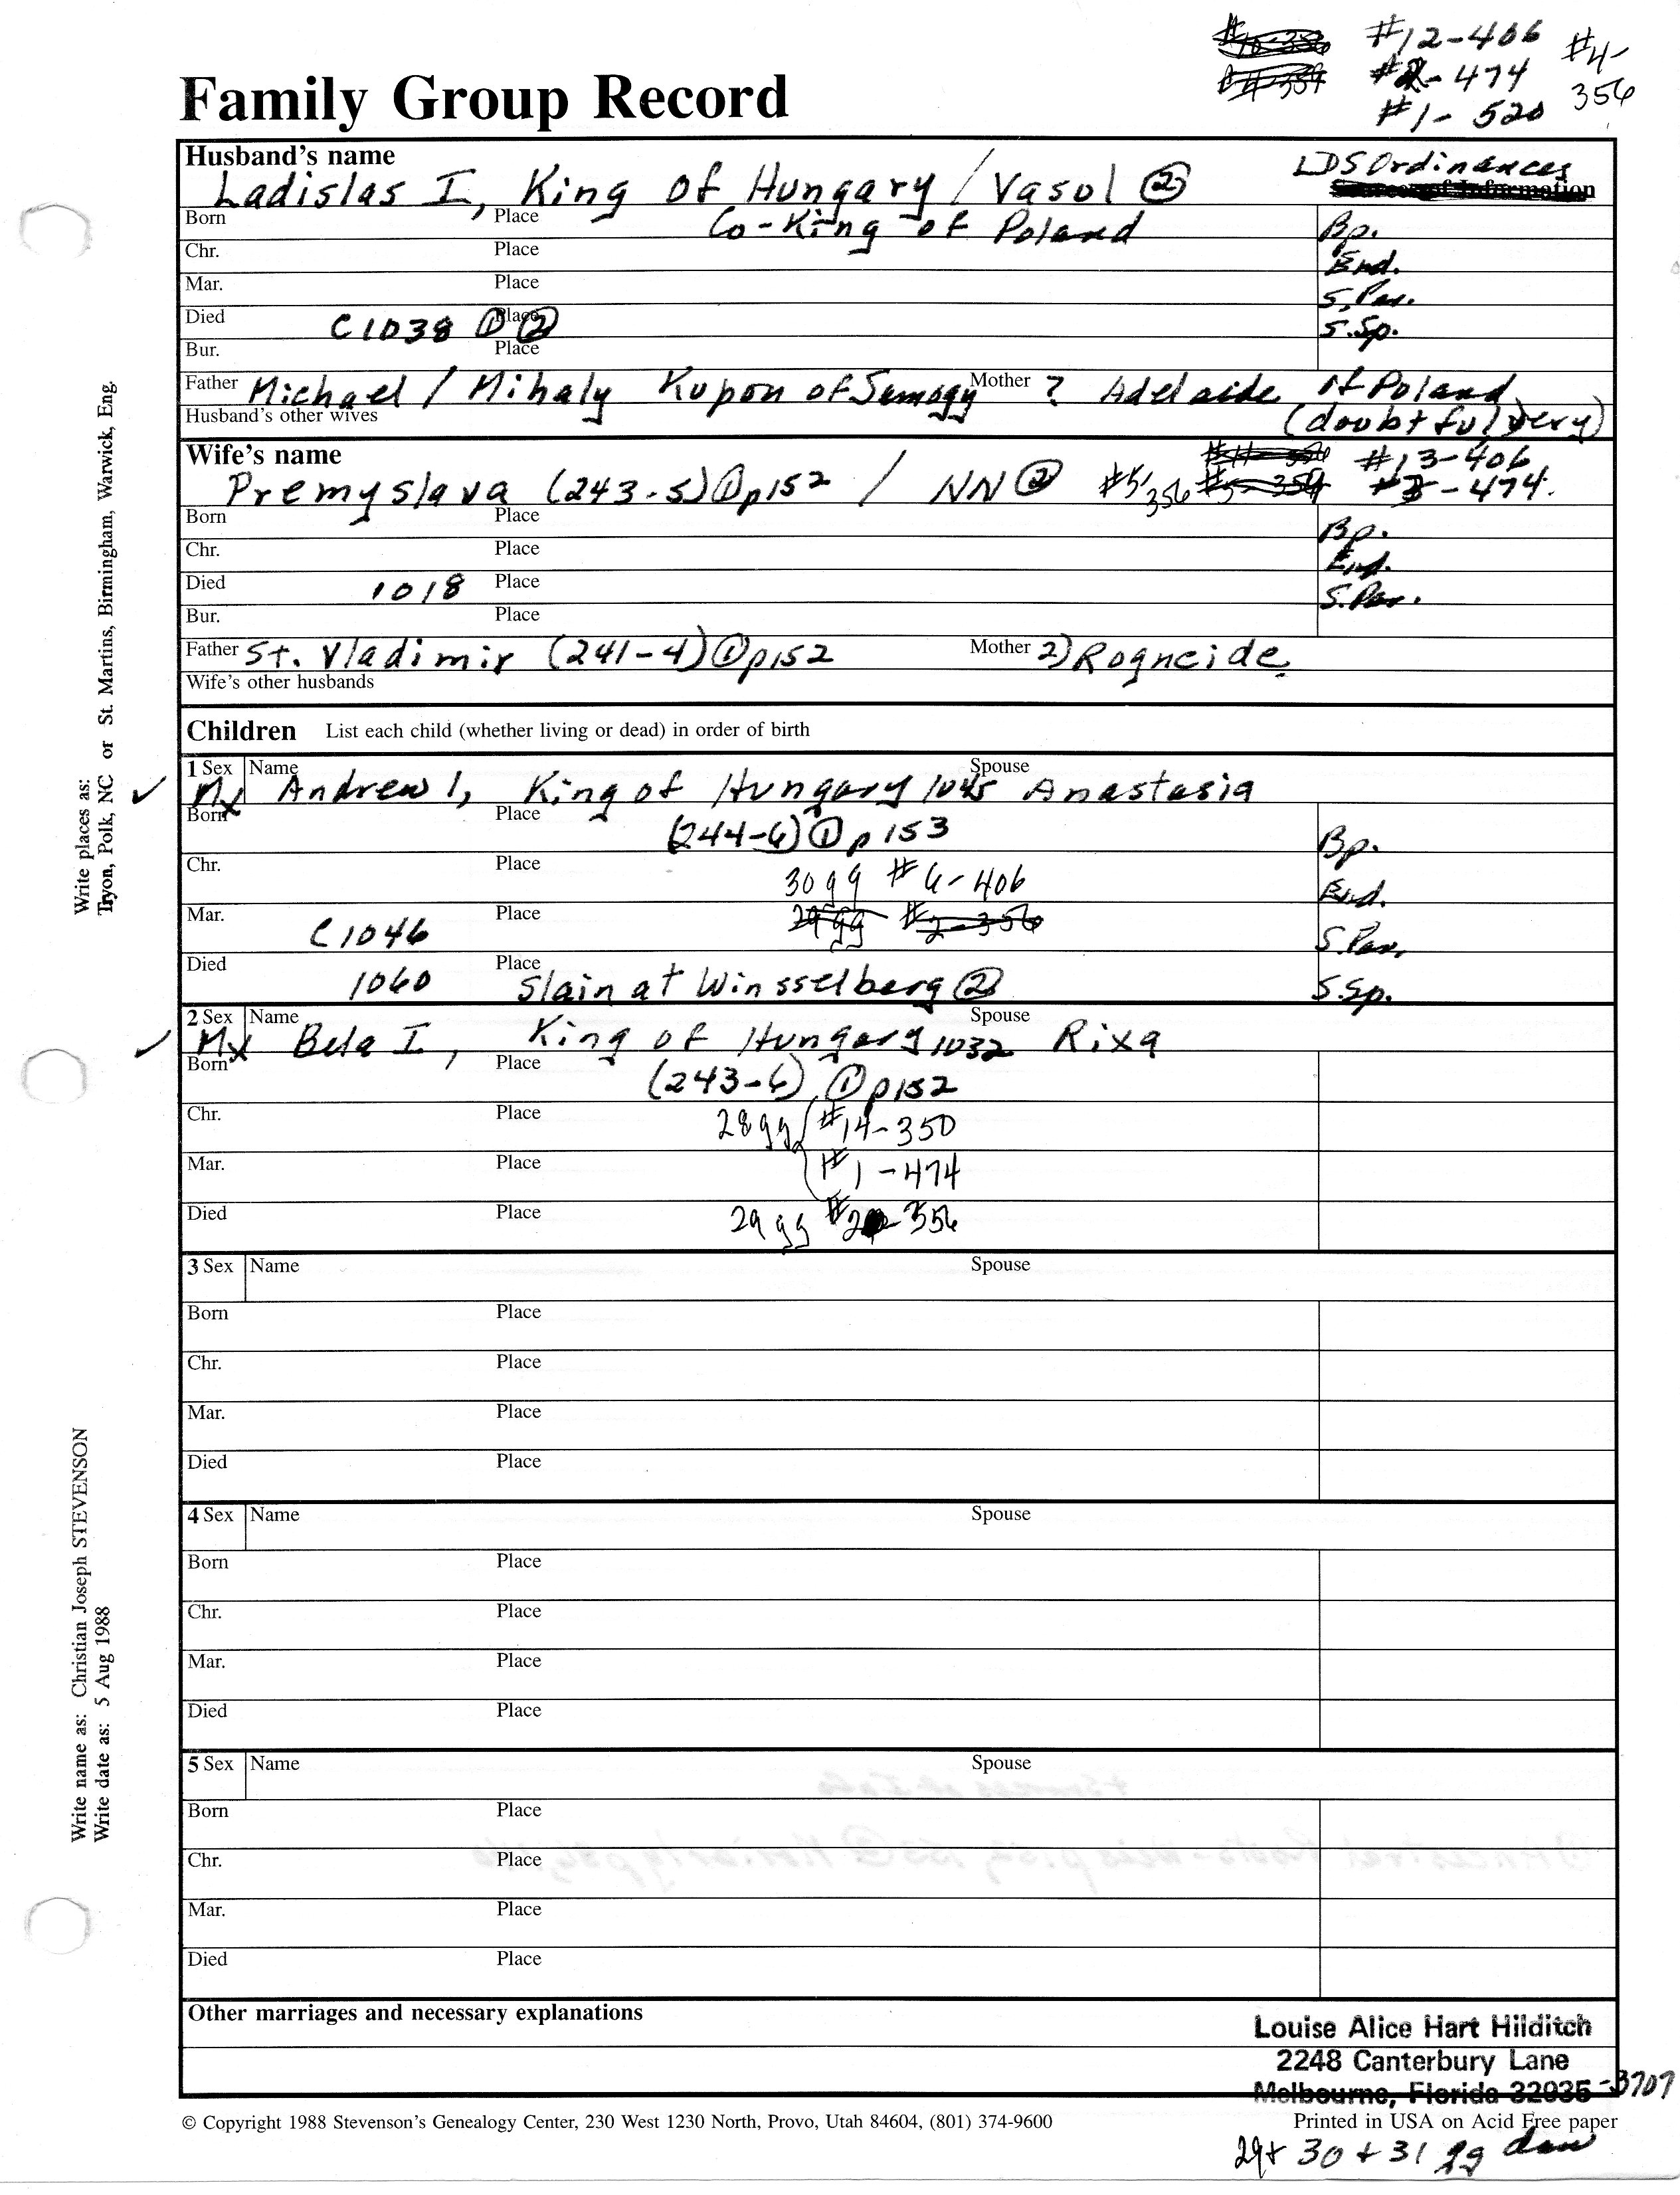 #12-406 #4-
#2-474 356
#1-520
Family Group Record
Husband's name
LDS Ordinances
Ladislas I, King of Hungary / Vasol ②
Sources of Information
Born Place Co-King of Poland Bp.
Chr. Place End.
Mar. Place S.Par.
Died C1038 ① ② Place S.Sp.
Bur. Place
Father Michael / Mihaly Kupon of Sumogy Mother ? Adelaide of Poland
Husband's other wives (doubtful) very)
Wife's name #13-406
Premyslava (243-5)①p152 / NN② #5, 356 #3-474.
Born Place Bp.
Chr. Place End.
Died 1018 Place S.Par.
Bur. Place
Father St. Vladimir (241-4)①p152 Mother 2) Rogneide
Wife's other husbands
Children List each child (whether living or dead) in order of birth
1 Sex Name Spouse
✓ Mx Andrew I, King of Hungary 1045 Anastasia
Born Place (244-6)① p153 Bp.
Chr. Place 30gg #6-406 End.
Mar. C1046 Place 29gg #2-356 S.Par.
Died 1060 Place Slain at Winsselberg② S.Sp.
2 Sex Name Spouse
✓ Mx Bela I, King of Hungary 1032 Rixa
Born Place (243-6) ①p152
Chr. Place 28gg #14-350
Mar. Place #1-474
Died Place 29gg #2-356
3 Sex Name Spouse
Born Place
Chr. Place
Mar. Place
Died Place
4 Sex Name Spouse
Born Place
Chr. Place
Mar. Place
Died Place
5 Sex Name Spouse
Born Place
Chr. Place
Mar. Place
Died Place
Other marriages and necessary explanations
Louise Alice Hart Hilditch
2248 Canterbury Lane
Melbourne, Florida 32935-3707
© Copyright 1988 Stevenson's Genealogy Center, 230 West 1230 North, Provo, Utah 84604, (801) 374-9600 Printed in USA on Acid Free paper
29+ 30 + 31 gg dau
Write places as:
Tryon, Polk, NC or St. Martins, Birmingham, Warwick, Eng.
Write name as: Christian Joseph STEVENSON
Write date as: 5 Aug 1988